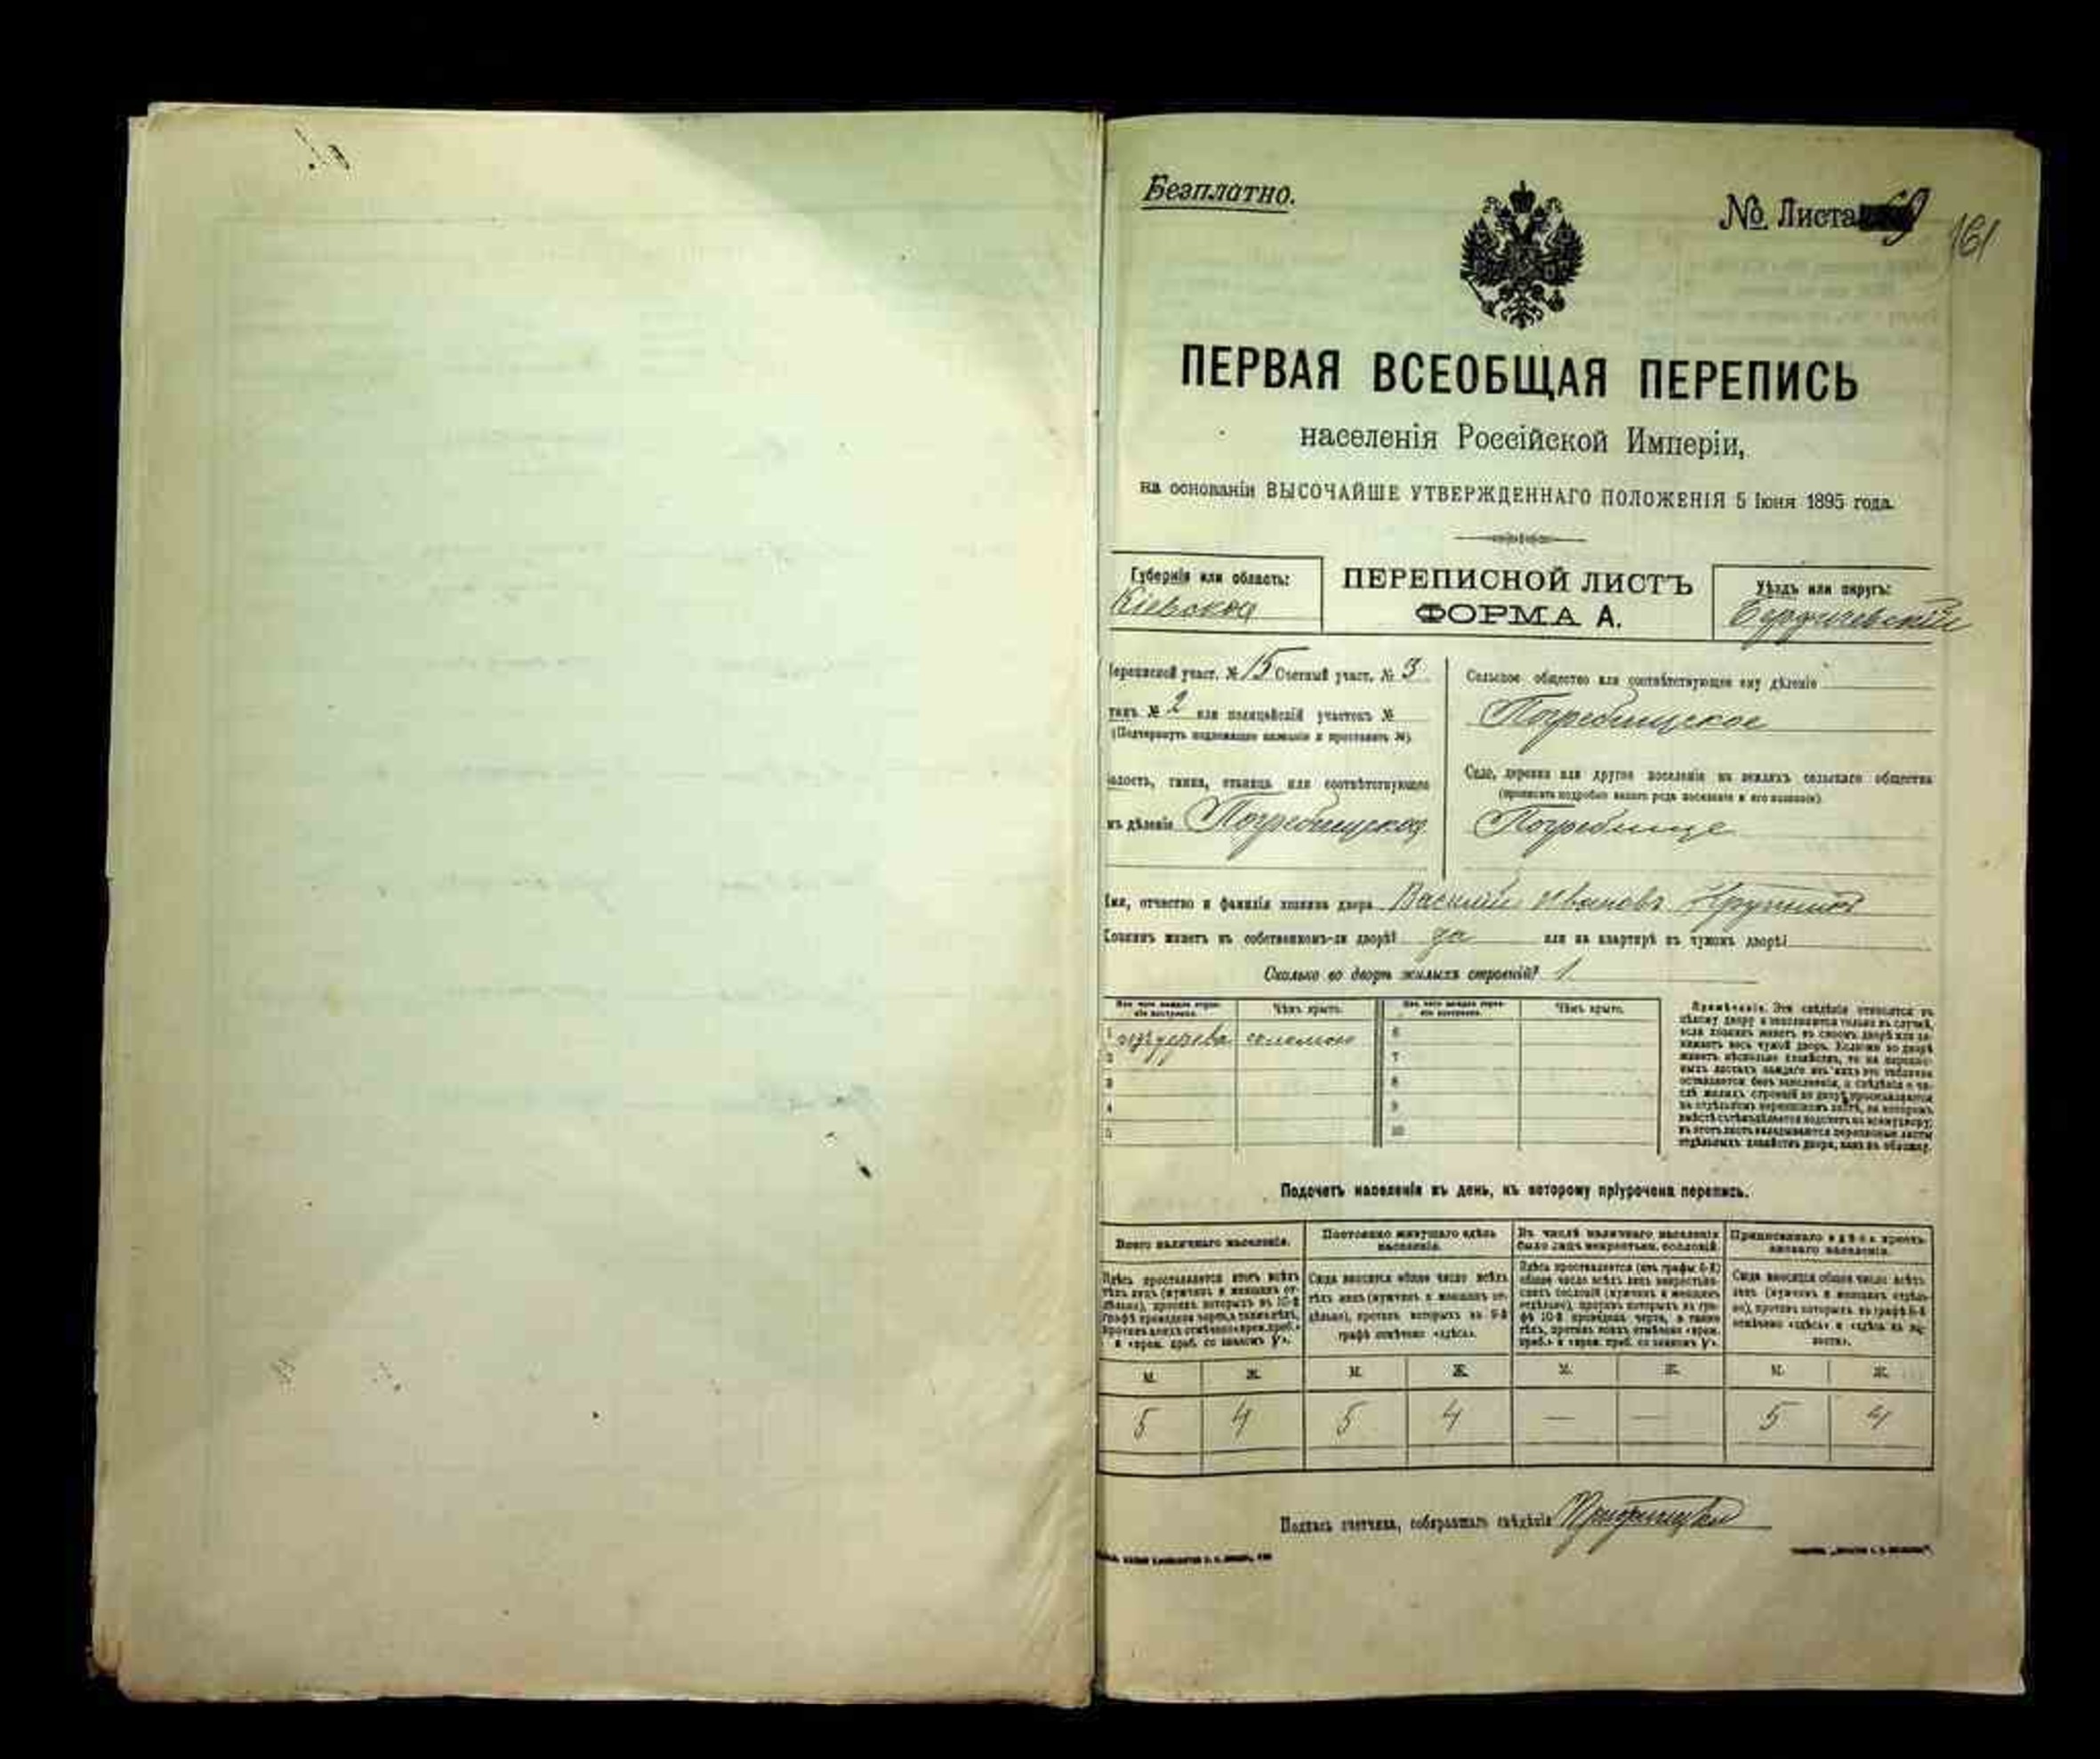 Безплатно.
№ Листа 69
161
ПЕРВАЯ ВСЕОБЩАЯ ПЕРЕПИСЬ
населенія Россійской Имперіи,
на основаніи ВЫСОЧАЙШЕ УТВЕРЖДЕННАГО ПОЛОЖЕНІЯ 5 Іюня 1895 года.
Губернія или область:
Кіевская
ПЕРЕПИСНОЙ ЛИСТЪ
ФОРМА А.
Уѣздъ или округъ:
Бердичевскій
ереписной участ. № 15 Счетный участ. № 3
танъ № 2 или полицейскій участокъ №
(Подчеркнуть подлежащее названіе и проставить №).
олость, гмина, станица или соотвѣтствующее
мъ дѣленіе Погребищская
Сельское общество или соотвѣтствующее ему дѣленіе
Погребищское
Село, деревня или другое поселеніе на земляхъ сельскаго общества
(прописать подробно какого рода поселеніе и его названіе).
Погребище
Имя, отчество и фамилія хозяина двора Василій Ивановъ
Хозяинъ живетъ въ собственномъ-ли дворѣ? да или на квартирѣ въ чужомъ дворѣ?
Сколько во дворѣ жилыхъ строеній? 1
Изъ чего каждое строеніе построено. Чѣмъ крыто. Изъ чего каждое строеніе построено. Чѣмъ крыто.
1 изъ дерева соломою 6
2 7
3 8
4 9
5 10
Примѣчаніе. Эти свѣдѣнія относятся къ
цѣлому двору и заполняются только въ случаѣ,
если хозяинъ живетъ въ своемъ дворѣ или за-
нимаетъ весь чужой дворъ. Если-же во дворѣ
живетъ нѣсколько хозяйствъ, то на перепис-
ныхъ листахъ каждаго изъ нихъ эта табличка
оставляется безъ заполненія, а свѣдѣнія о чи-
слѣ жилыхъ строеній во дворѣ проставляются
на отдѣльномъ переписномъ листѣ, на которомъ
вмѣстѣ съ тѣмъ дѣлается подсчетъ по всему двору;
въ этотъ листъ вкладываются переписные листы
отдѣльныхъ хозяйствъ двора, какъ въ обложку.
Подсчетъ населенія въ день, къ которому пріурочена перепись.
Всего наличнаго населенія.
Здѣсь проставляется итогъ всѣхъ
тѣхъ лицъ (мужчинъ и женщинъ от-
дѣльно), противъ которыхъ въ 10-й
графѣ проведена черта, а также тѣхъ,
противъ коихъ отмѣчено «врем. преб.»
и «врем. преб. со знакомъ V».
Постоянно живущаго здѣсь
населенія.
Сюда вносится общее число всѣхъ
тѣхъ лицъ (мужчинъ и женщинъ от-
дѣльно), противъ которыхъ въ 9-й
графѣ отмѣчено «здѣсь».
Въ числѣ наличнаго населенія
было лицъ некрестьян. сословій.
Здѣсь проставляется (изъ графы 6-й)
общее число всѣхъ лицъ некрестьян-
скихъ сословій (мужчинъ и женщинъ
отдѣльно), противъ которыхъ въ гра-
фѣ 10-й проведена черта, а также
тѣхъ, противъ коихъ отмѣчено «врем.
преб.» и «врем. преб. со знакомъ V».
Приписаннаго здѣсь кресть-
янскаго населенія.
Сюда вносится общее число всѣхъ
лицъ (мужчинъ и женщинъ отдѣль-
но), противъ которыхъ въ графѣ 8-й
отмѣчено «здѣсь» и «здѣсь въ во-
лости».
М. Ж. М. Ж. М. Ж. М. Ж.
5 4 5 4 — — 5 4
Подпись счетчика, собиравшаго свѣдѣнія